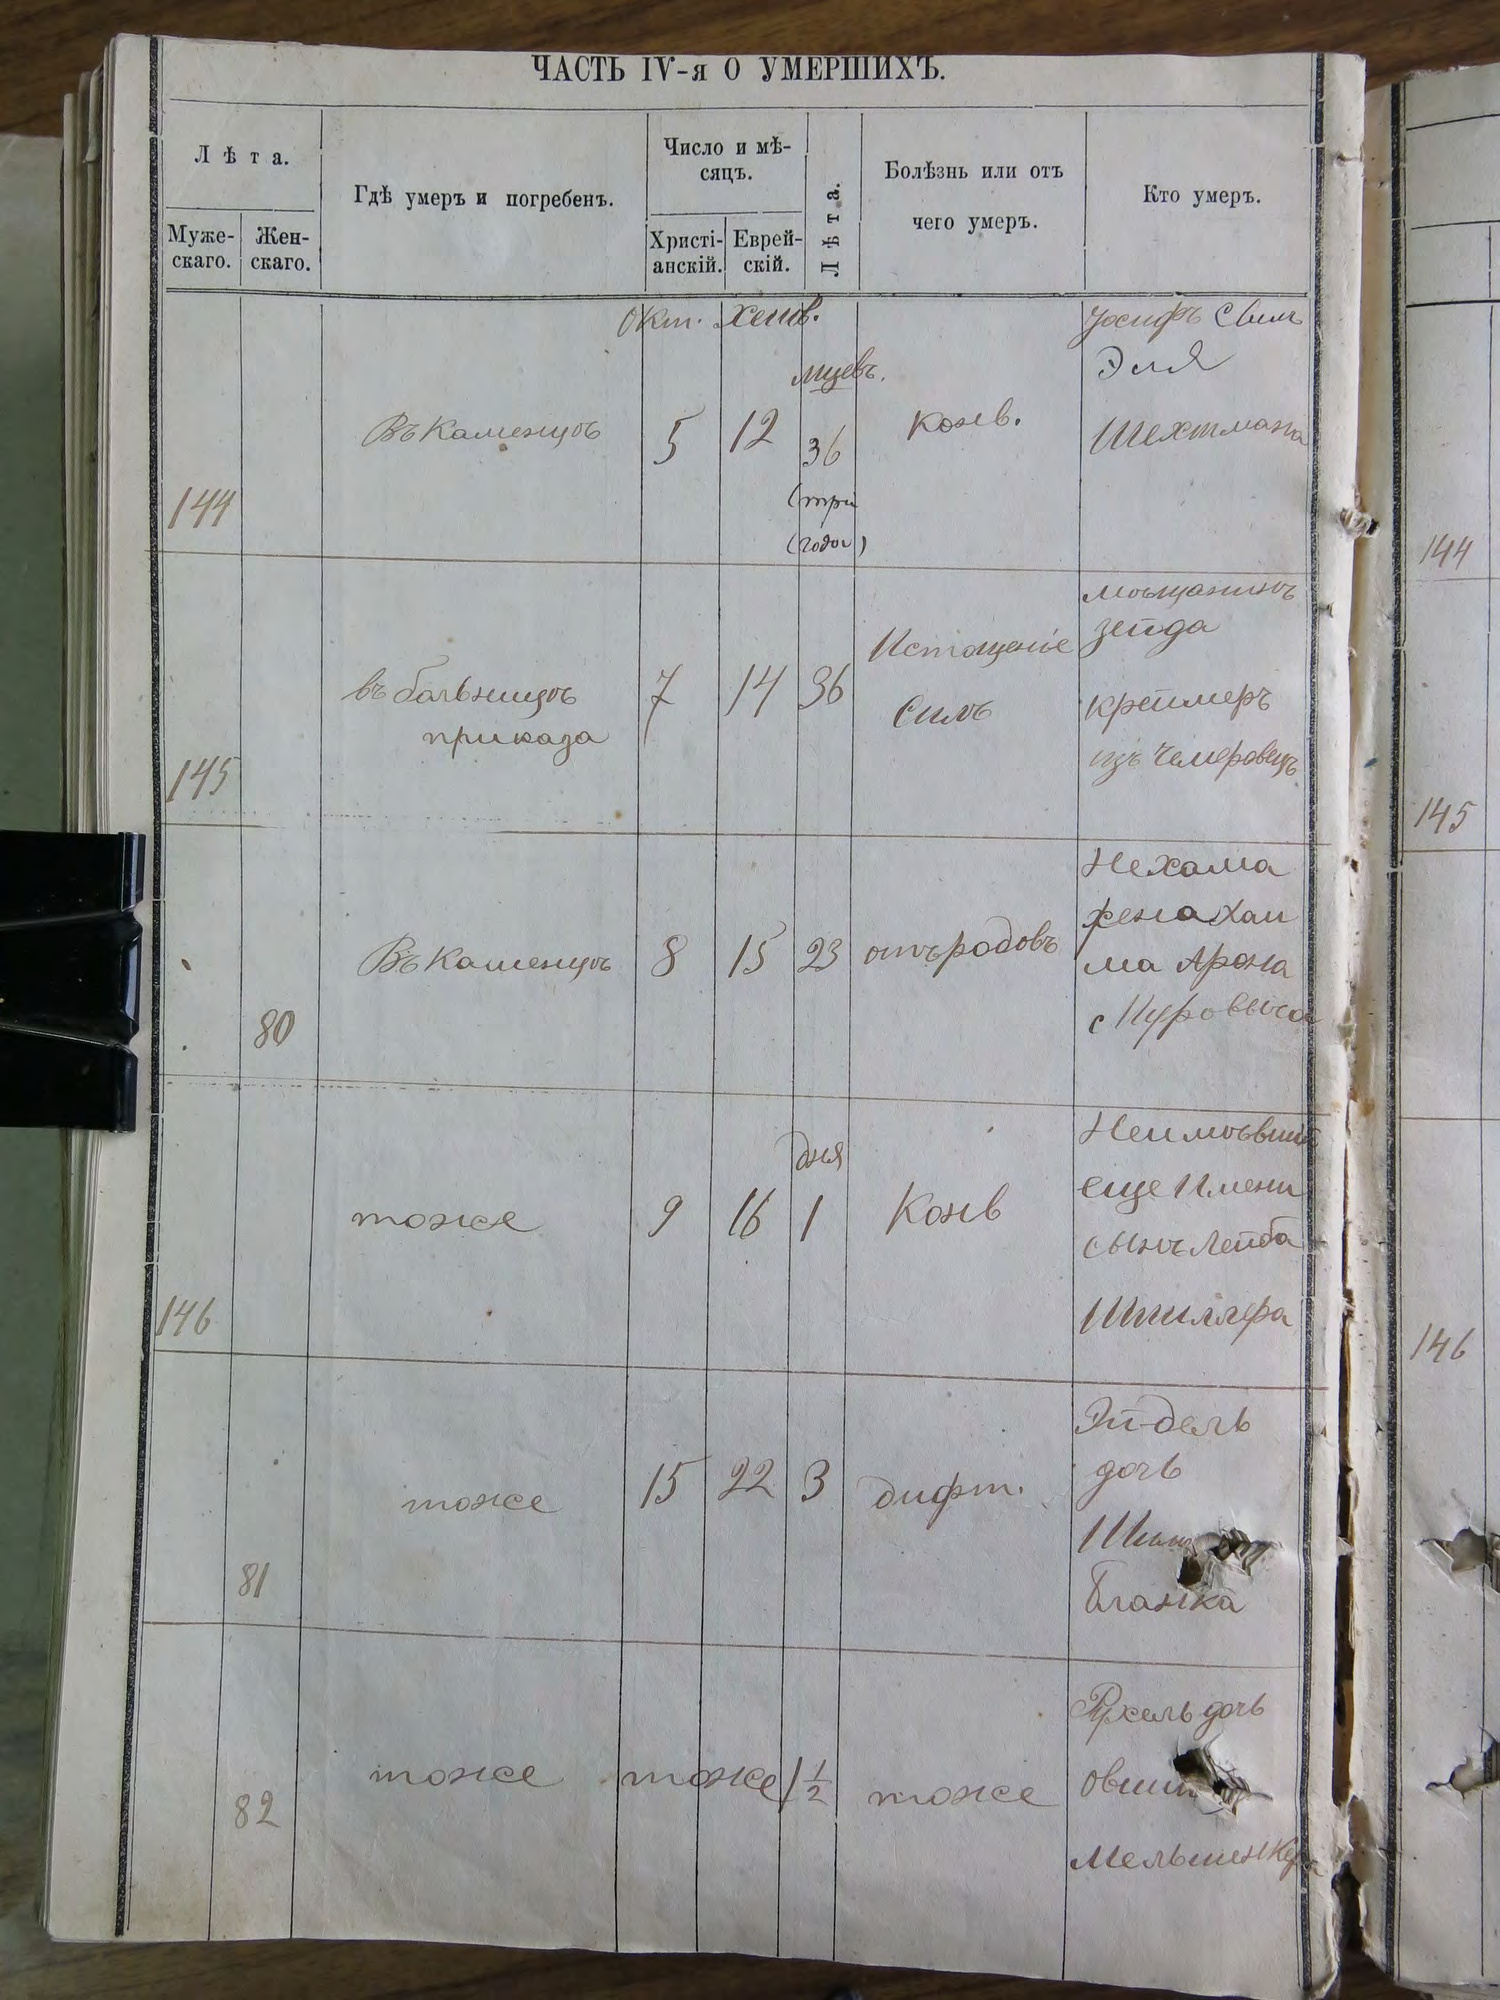 ЧАСТЬ IV-я О УМЕРШИХЪ.
Лѣта.
Мужескаго.
Женскаго.
Гдѣ умеръ и погребенъ.
Число и мѣсяцъ.
Христіанскій.
Еврейскій.
Лѣта.
Болѣзнь или отъ
чего умеръ.
Кто умеръ.
Окт.
144
Въ Каменцѣ
5
12
мцевъ.
36
(три
(годы)
конв.
Іосифъ сынъ
Эля
Шехтмана
145
въ больницѣ
приказа
7
14
36
Истощеніе
силъ
мѣщанинъ
Зейда
Креймеръ
изъ Чемеровецъ
80
Въ Каменцѣ
8
15
23
отъ родовъ
Нехама
жена Хаи
ма Арона
146
тоже
9
16
дня
1
Конв
Неимѣвшій
еще Имени
сынъ Лейба
Шпиллера
81
тоже
15
22
3
дифт.
Эйдель
дочь
Бланка
82
тоже
тоже
1 1/2
тоже
Рухель дочь
144
145
146